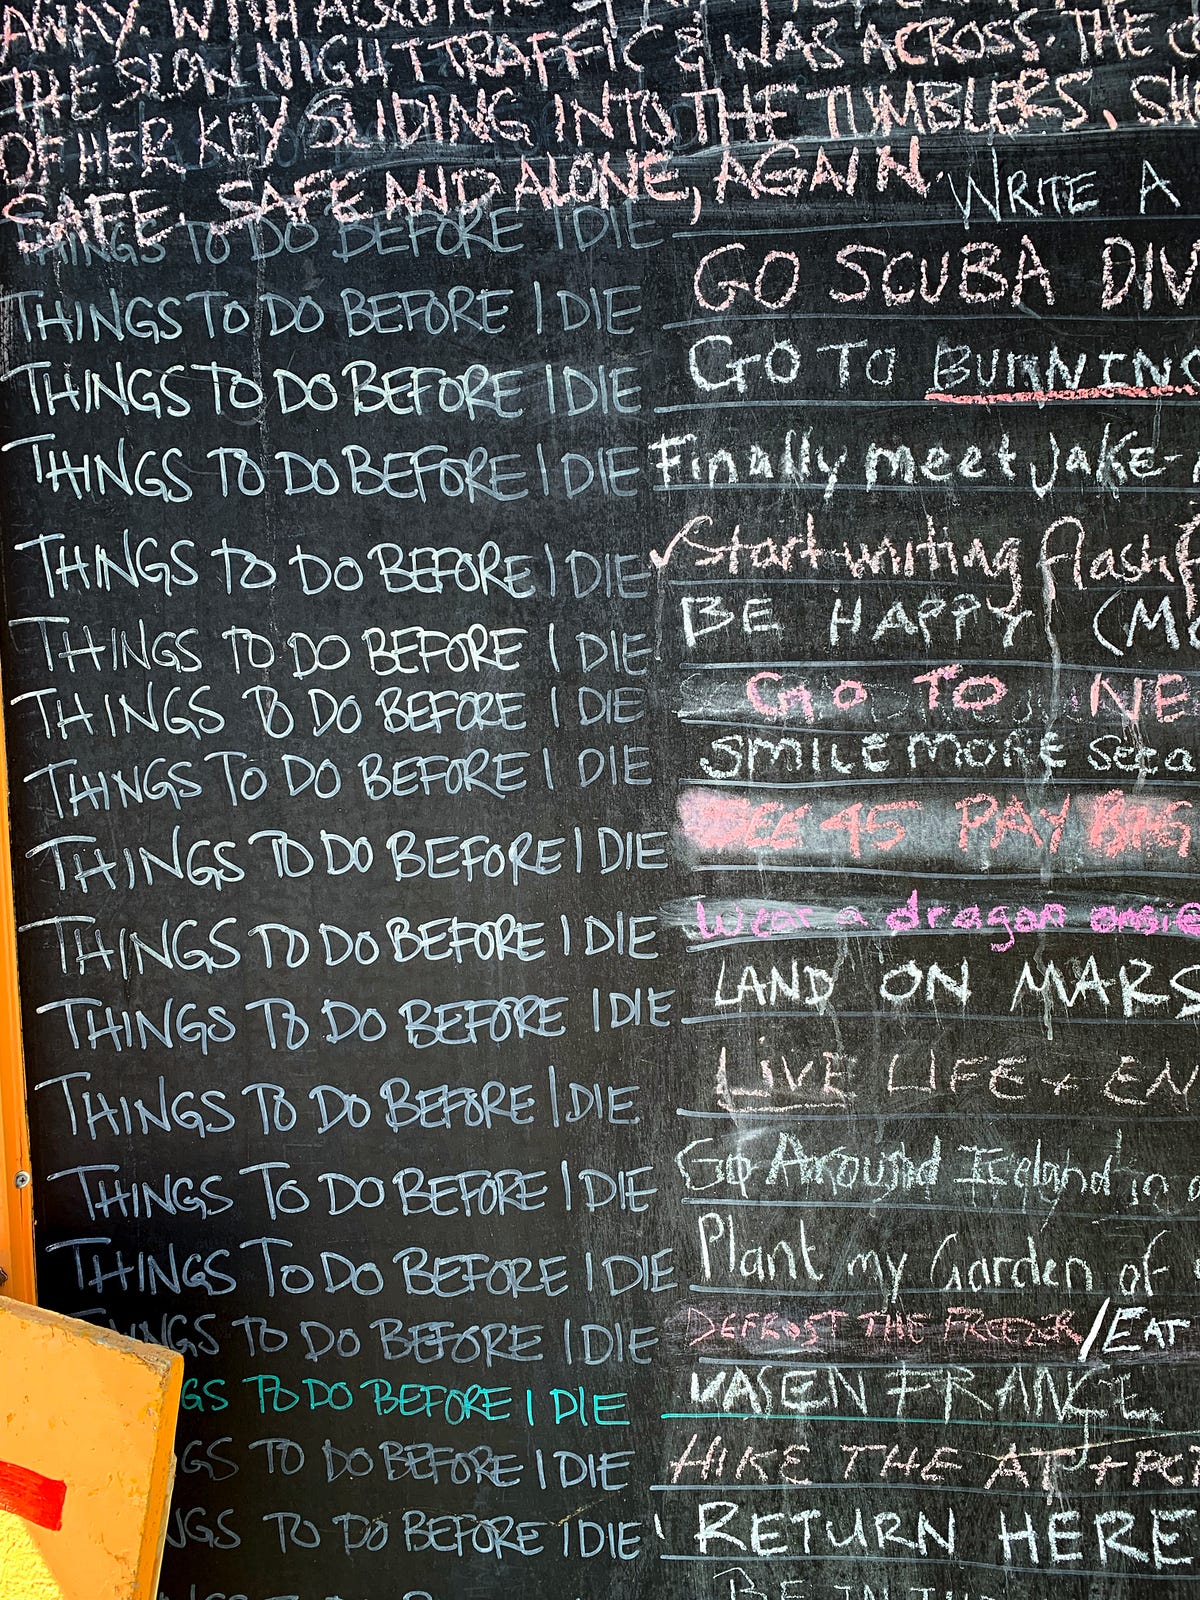 AWAY. WITH
THE SLOW NIGHT TRAFFIC & WAS ACROSS. THE
OF HER KEY SLIDING INTO THE TUMBLERS. SH
SAFE. SAFE AND ALONE, AGAIN.
THINGS TO DO BEFORE I DIE WRITE A
THINGS TO DO BEFORE I DIE GO SCUBA DIV
THINGS TO DO BEFORE I DIE GO TO BURNING
THINGS TO DO BEFORE I DIE Finally meet Jake-
THINGS TO DO BEFORE I DIE ✓Start writing flash f
THINGS TO DO BEFORE I DIE BE HAPPY (M
THINGS TO DO BEFORE I DIE GO TO NE
THINGS TO DO BEFORE I DIE SMILE MORE
THINGS TO DO BEFORE I DIE SEE 45 PAY BIG
THINGS TO DO BEFORE I DIE Wear a dragon onsie
THINGS TO DO BEFORE I DIE LAND ON MARS
THINGS TO DO BEFORE I DIE LIVE LIFE + EN
THINGS TO DO BEFORE I DIE Go Around Iceland in a
THINGS TO DO BEFORE I DIE Plant my Garden of
THINGS TO DO BEFORE I DIE DEFROST THE FREEZER /EAT
GS TO DO BEFORE I DIE FRANCE
GS TO DO BEFORE I DIE HIKE THE AT
NGS TO DO BEFORE I DIE ! RETURN HERE
BE IN